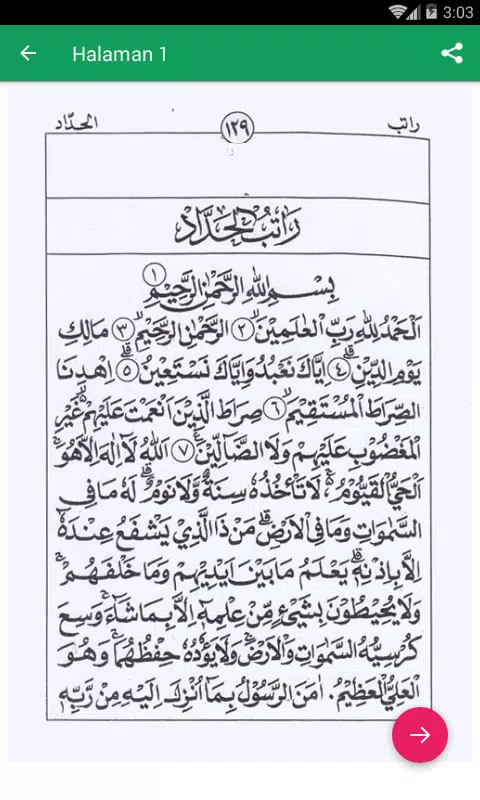 3:03
Halaman 1
راتب ١٢٩ الحدّاد
رَاتِبُ الْحَدَّادِ
بِسْمِ اللهِ الرَّحْمٰنِ الرَّحِيْمِ ١
اَلْحَمْدُ لِلّٰهِ رَبِّ الْعٰلَمِيْنَ ٢ الرَّحْمٰنِ الرَّحِيْمِ ٣ مَالِكِ
يَوْمِ الدِّيْنِ ٤ اِيَّاكَ نَعْبُدُ وَاِيَّاكَ نَسْتَعِيْنُ ٥ اِهْدِنَا
الصِّرَاطَ الْمُسْتَقِيْمَ ٦ صِرَاطَ الَّذِيْنَ اَنْعَمْتَ عَلَيْهِمْ غَيْرِ
الْمَغْضُوْبِ عَلَيْهِمْ وَلَا الضَّآلِّيْنَ ٧ اَللهُ لَا اِلٰهَ اِلَّا هُوَ
الْحَيُّ الْقَيُّوْمُ ۚ لَا تَأْخُذُهُ سِنَةٌ وَّلَا نَوْمٌ ۗ لَهُ مَا فِى
السَّمٰوَاتِ وَمَا فِى الْاَرْضِ ۗ مَنْ ذَا الَّذِيْ يَشْفَعُ عِنْدَهٗ
اِلَّا بِاِذْنِهٖ ۗ يَعْلَمُ مَا بَيْنَ اَيْدِيْهِمْ وَمَا خَلْفَهُمْ ۚ
وَلَا يُحِيْطُوْنَ بِشَيْئٍ مِّنْ عِلْمِهٖ اِلَّا بِمَا شَاءَ ۚ وَسِعَ
كُرْسِيُّهُ السَّمٰوَاتِ وَالْاَرْضَ ۚ وَلَا يَؤُدُهٗ حِفْظُهُمَا ۚ وَهُوَ
الْعَلِيُّ الْعَظِيْمُ. اٰمَنَ الرَّسُوْلُ بِمَا اُنْزِلَ اِلَيْهِ مِنْ رَّبِّهٖ